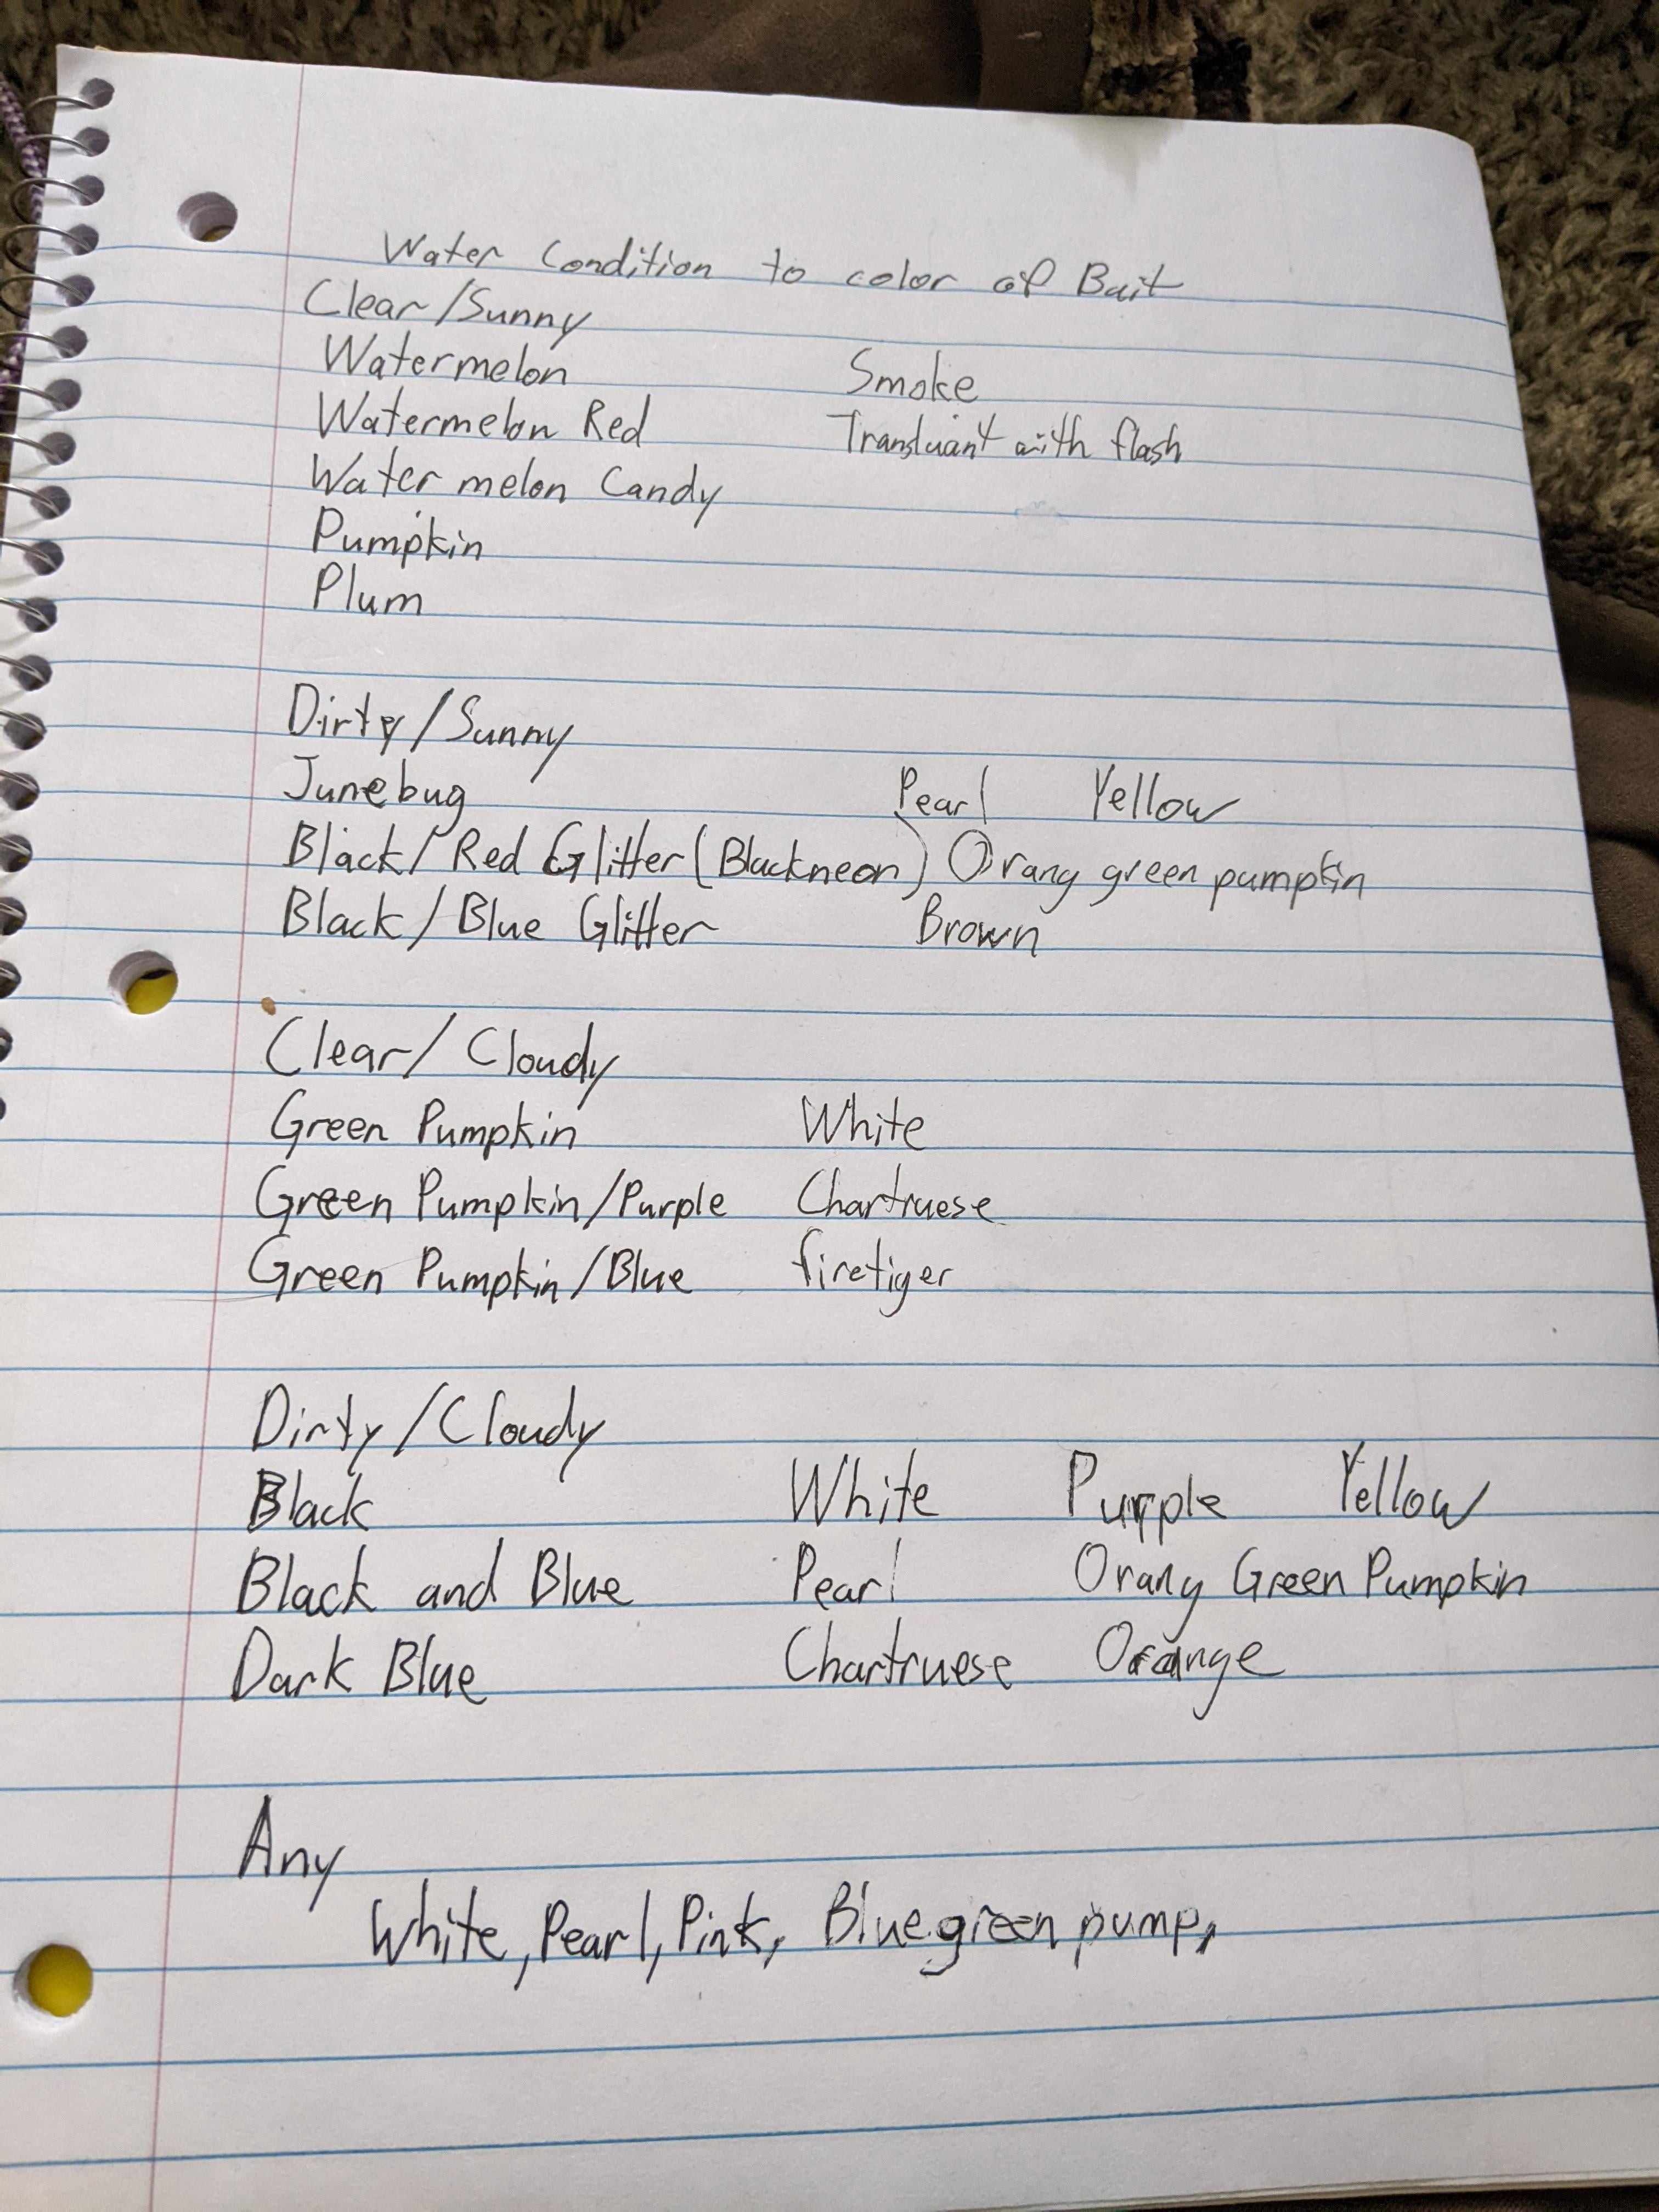 Water Condition to color of Bait
Clear/Sunny
Watermelon Smoke
Watermelon Red Transluant with flash
Water melon Candy
Pumpkin
Plum
Dirty/Sunny
Junebug Pearl Yellow
Black/Red Glitter(Blackneon) Orang green pumpkin
Black/Blue Glitter Brown
Clear/Cloudy
Green Pumpkin White
Green Pumpkin/Purple Chartruese
Green Pumpkin/Blue firetiger
Dirty/Cloudy
Black White Purple Yellow
Black and Blue Pearl Orang Green Pumpkin
Dark Blue Chartruese Orange
Any
White, Pearl, Pink, Blue green pump,